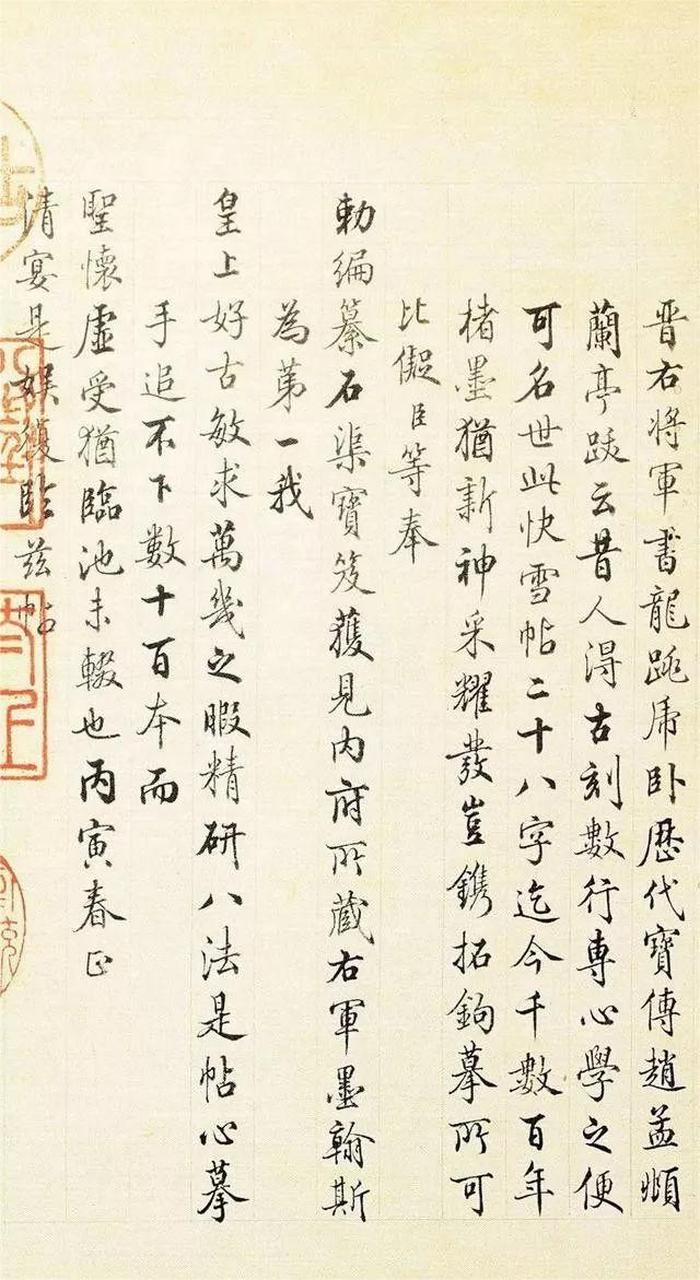 晋右將軍書龍跳虎卧歷代寶傳趙孟頫
蘭亭跋云昔人得古刻數行專心學之便
可名世此快雪帖二十八字迄今千數百年
楮墨猶新神采耀發豈鐫拓鉤摹所可
比儗臣等奉
勅編纂石渠寶笈獲見内府所藏右軍墨翰斯
為第一我
皇上好古敏求萬幾之暇精研八法是帖心摹
手追不下數十百本而
聖懷虛受猶臨池未輟也丙寅春正
清宴是娛復臨茲帖